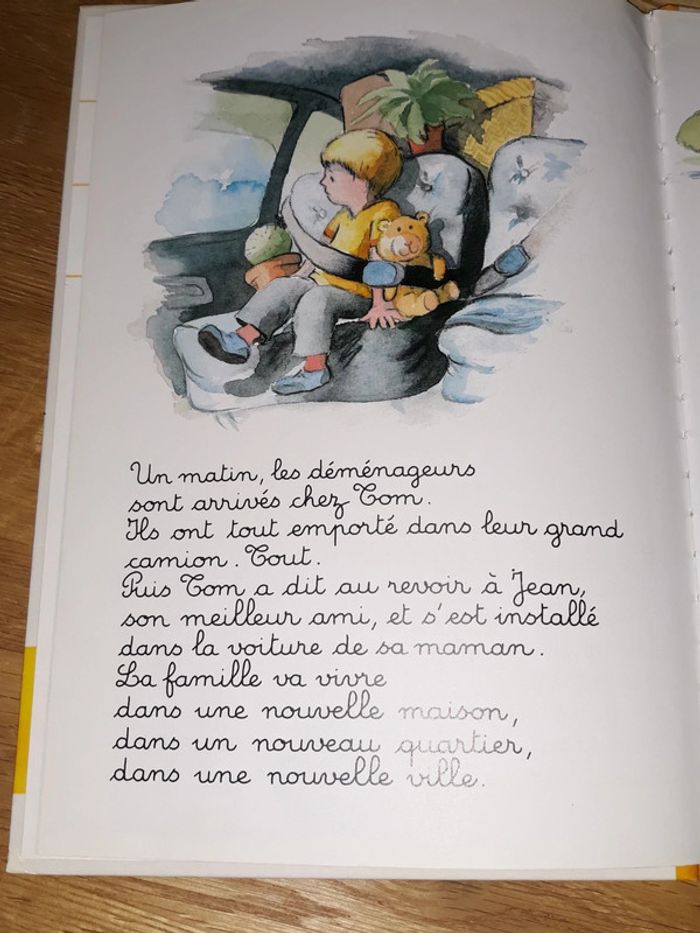 Un matin, les déménageurs
sont arrivés chez Tom.
Ils ont tout emporté dans leur grand
camion. Tout.
Puis Tom a dit au revoir à Jean,
son meilleur ami, et s'est installé
dans la voiture de sa maman.
La famille va vivre
dans une nouvelle maison,
dans un nouveau quartier,
dans une nouvelle ville.